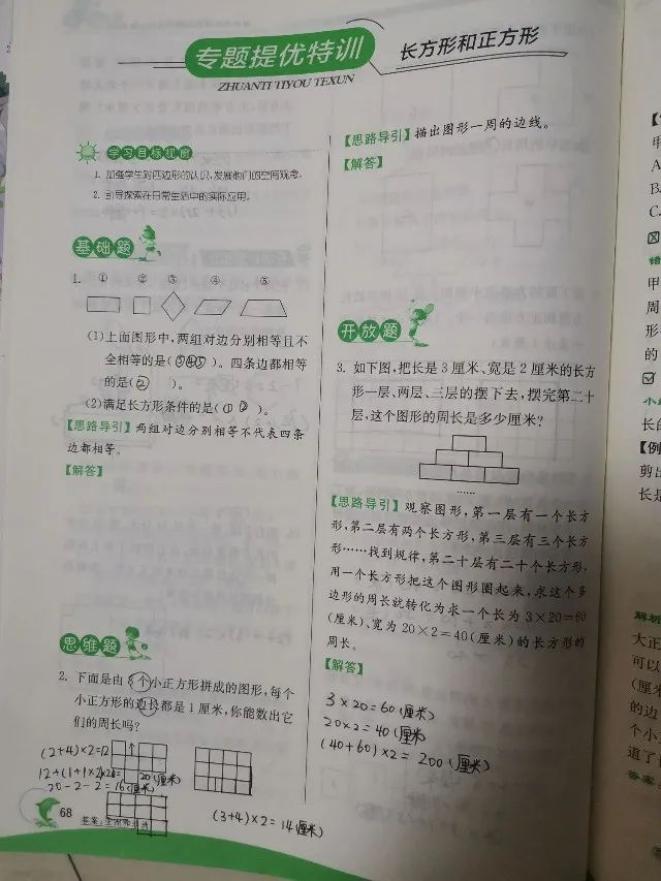 专题提优特训
长方形和正方形
ZHUANTI TIYOU TEXUN
学习目标
1. 加强学生对四边形的认识,发展他们的空间观念。
2. 引导探索在日常生活中的实际应用。
基础题
1. ① ② ③ ④ ⑤
(1)上面图形中,两组对边分别相等且不
全相等的是(③④⑤)。四条边都相等
的是(② )。
(2)满足长方形条件的是(① ②)。
【思路导引】两组对边分别相等不代表四条
边都相等。
【解答】
思维题
2. 下面是由8个小正方形拼成的图形,每个
小正方形的边长都是1厘米,你能数出它
们的周长吗?
(2+4)×2=12
20(厘米)
20-2-2=16(厘米)
(3+4)×2=14(厘米)
68
【思路导引】描出图形一周的边线。
【解答】
开放题
3. 如下图,把长是3厘米、宽是2厘米的长方
形一层、两层、三层的摆下去,摆完第二十
层,这个图形的周长是多少厘米?
……
【思路导引】观察图形,第一层有一个长方
形,第二层有两个长方形,第三层有三个长方
形……找到规律,第二十层有二十个长方形,
用一个长方形把这个图形围起来,求这个多
边形的周长就转化为求一个长为3×20=60
(厘米)、宽为20×2=40(厘米)的长方形的
周长。
【解答】
3×20=60(厘米)
20×2=40(厘米)
(40+60)×2=200(厘米)